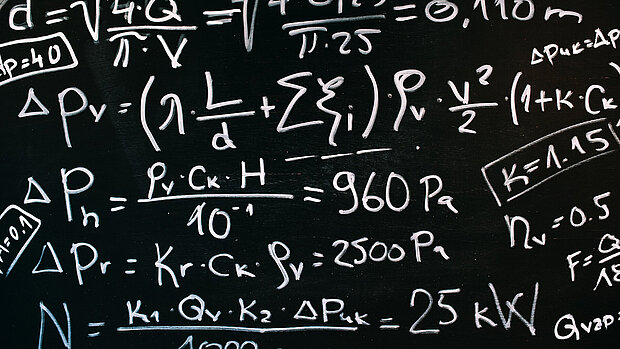 d = √(4·Q / π·V) = √( / π·25) = 0,110 m
Δp=40
Δpик=Δp
Δpv = (λ · L/d + Σξi) · ρv · v²/2 · (1+K·Cк
K=1.15
Δph = ρv·Cк·H / 10⁻¹ = 960 Pa
nv=0.5
=0.1
Δpr = Kr·Cк·ρv = 2500 Pa
F=
N = K1·Qv·K2·Δpик / = 25 kW